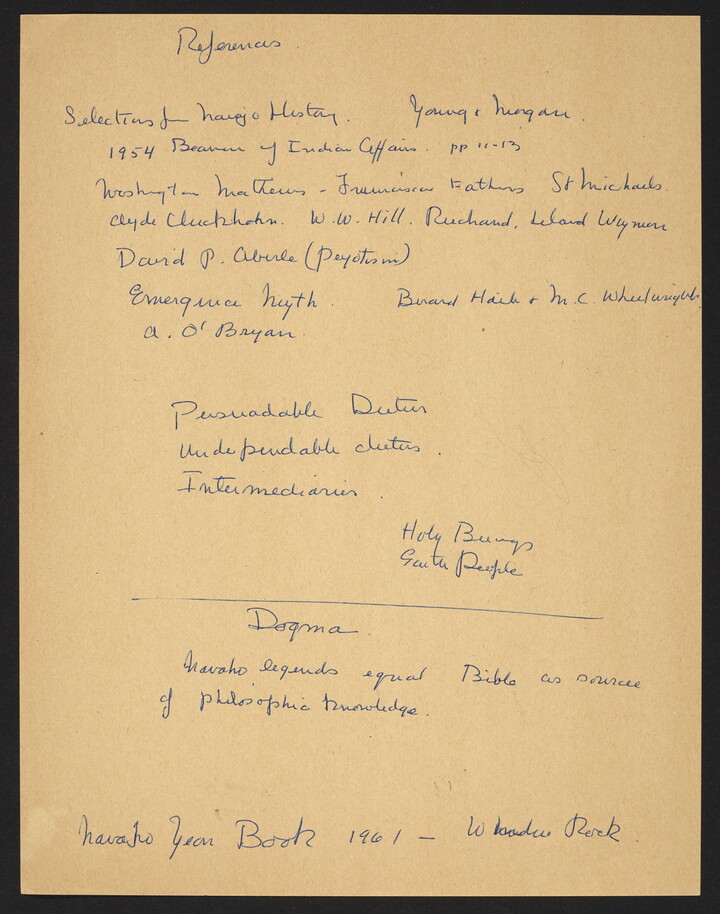 References.
Selections for Navajo History. Young & Morgan.
1954 Bearau of Indian Affairs. pp 11-13
Washington Mathews - Franciscan Fathers St Michaels.
Clyde Cluckhohn. W. W. Hill. Reichard. Leland Wyman
David P. Aberle (Peyotism)
Emergence Myth. Berard Haile & M. C. Wheelwright.
A. O'Bryan.
Persuadable Deities
Undependable dieties.
Intermediaries.
Holy Beings
Earth People
Dogma.
Navaho legends equal Bible as source
of philosophic knowledge.
Navaho Year Book 1961 - Window Rock.